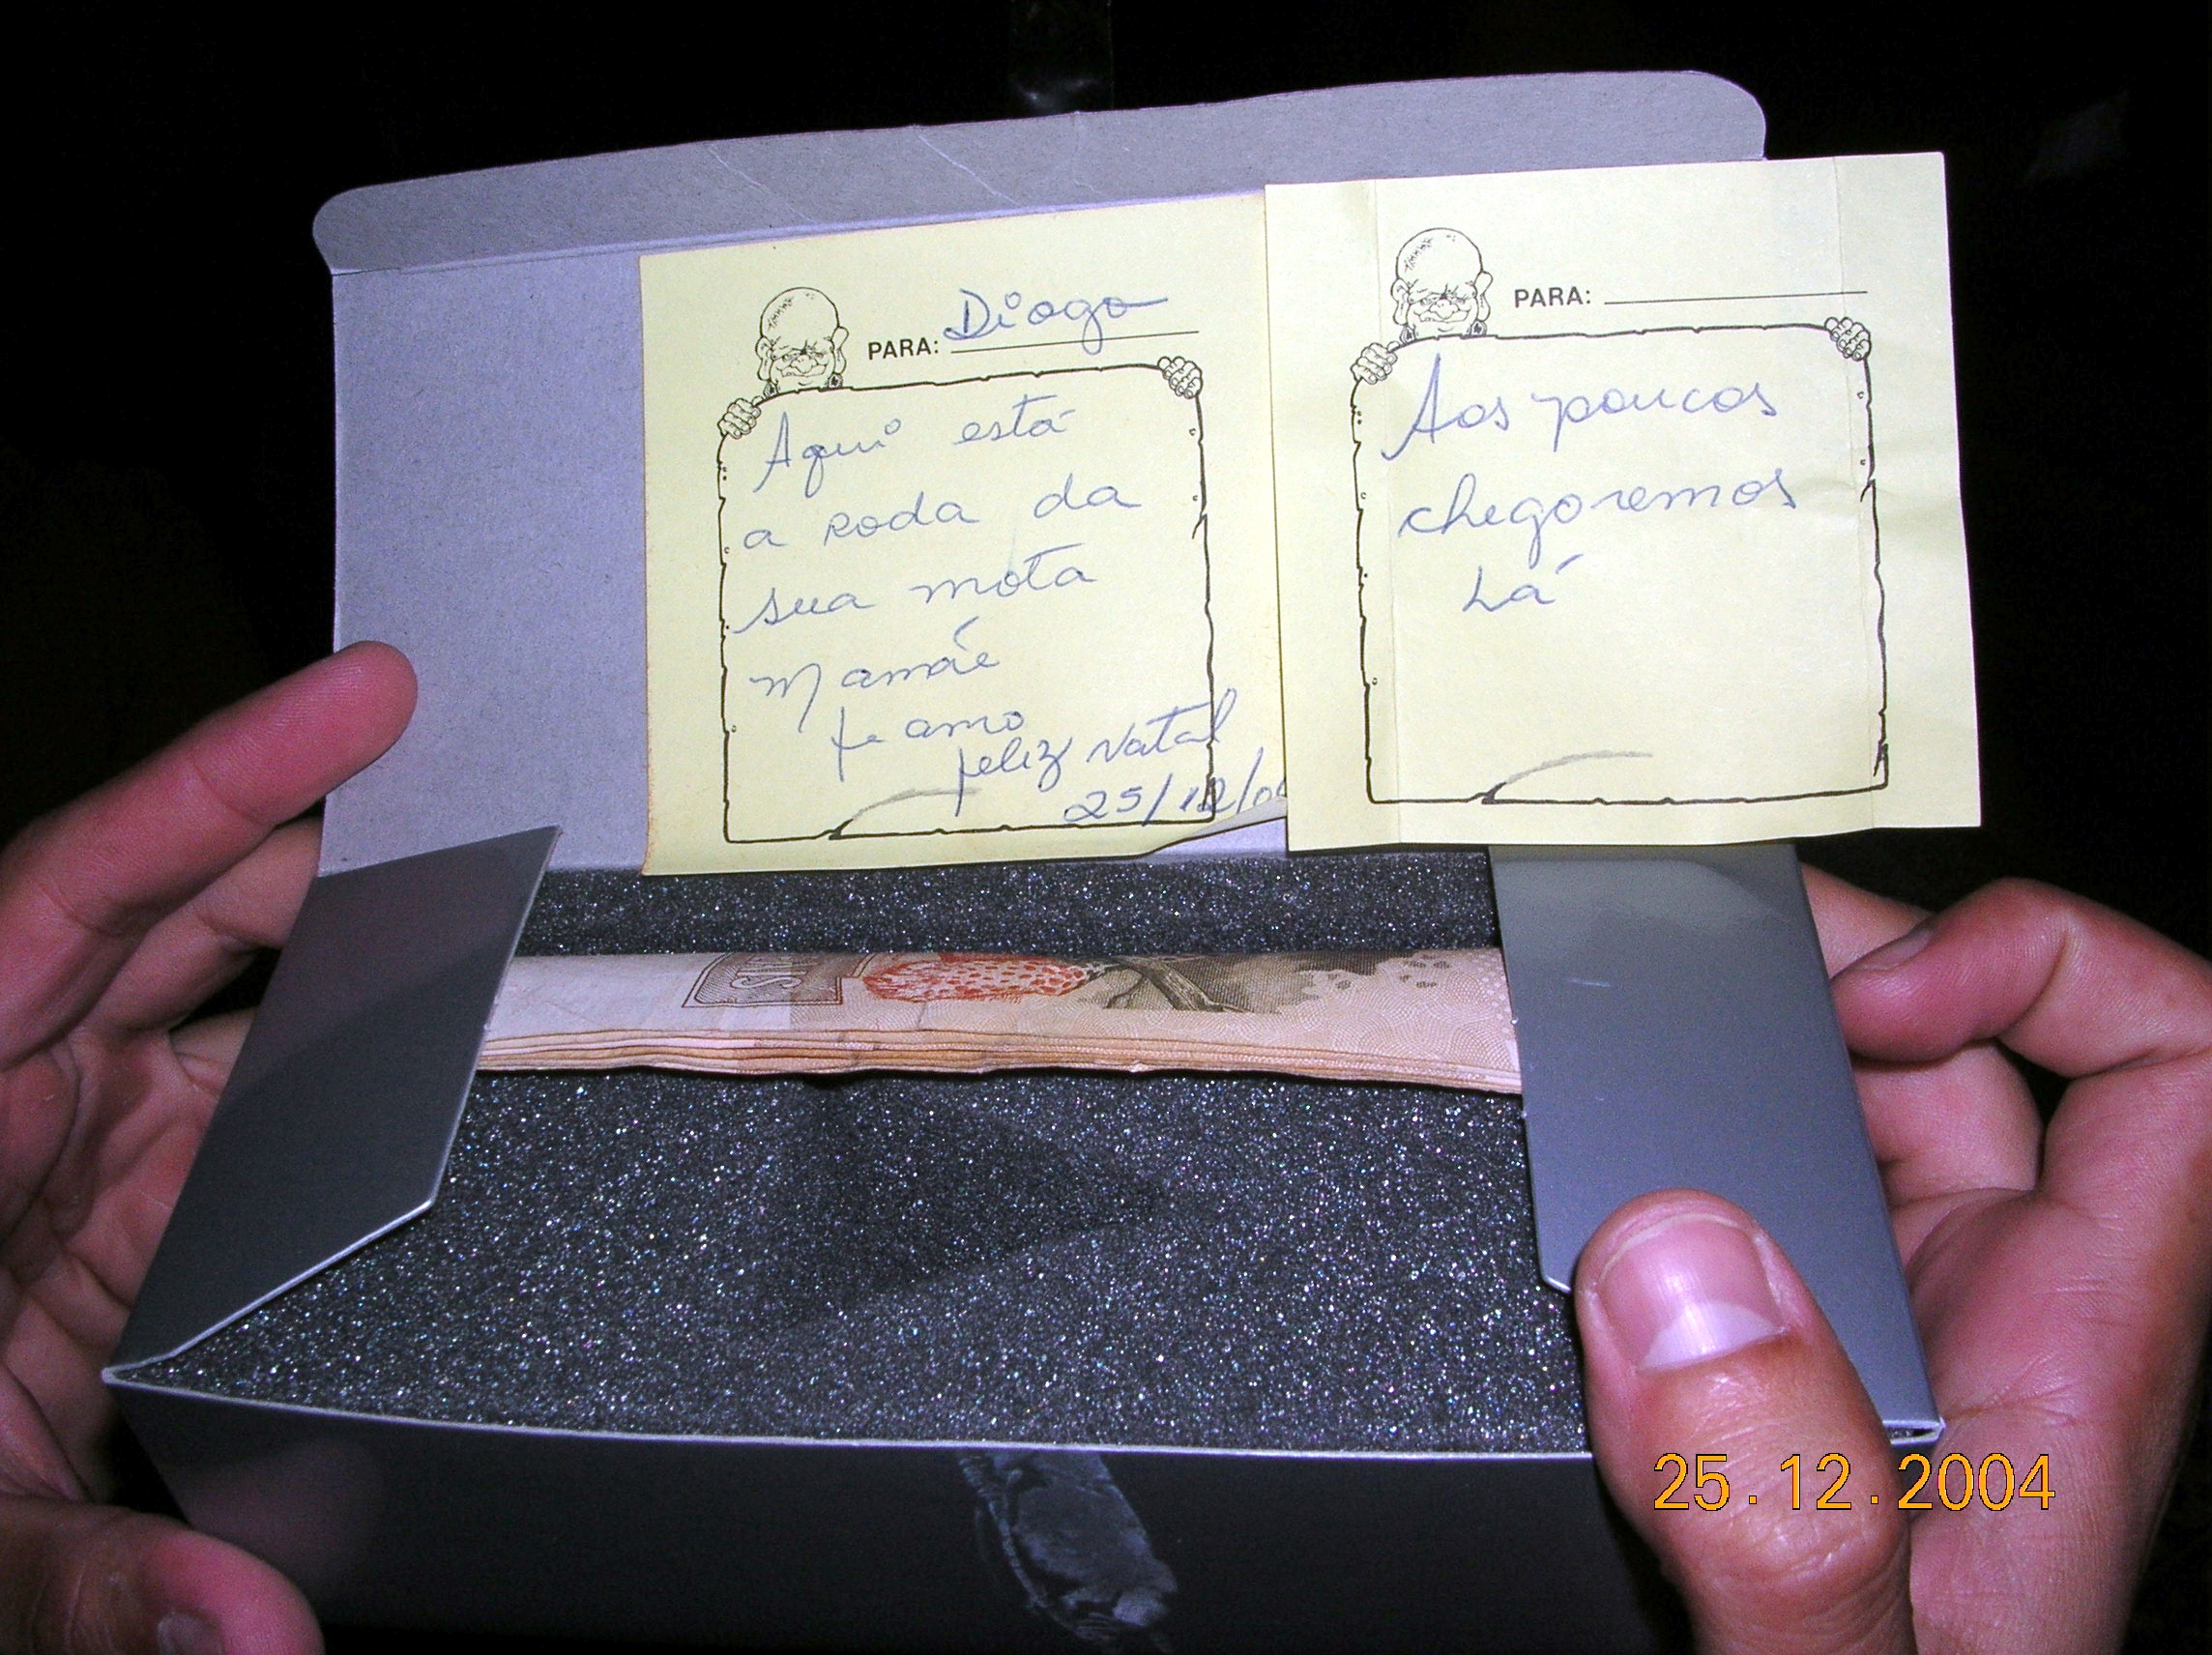 PARA: Diogo
Aqui está
a roda da
sua mota
Mamãe
te amo
feliz Natal
25/12/0
PARA:
Aos poucos
chegaremos
Lá
25.12.2004